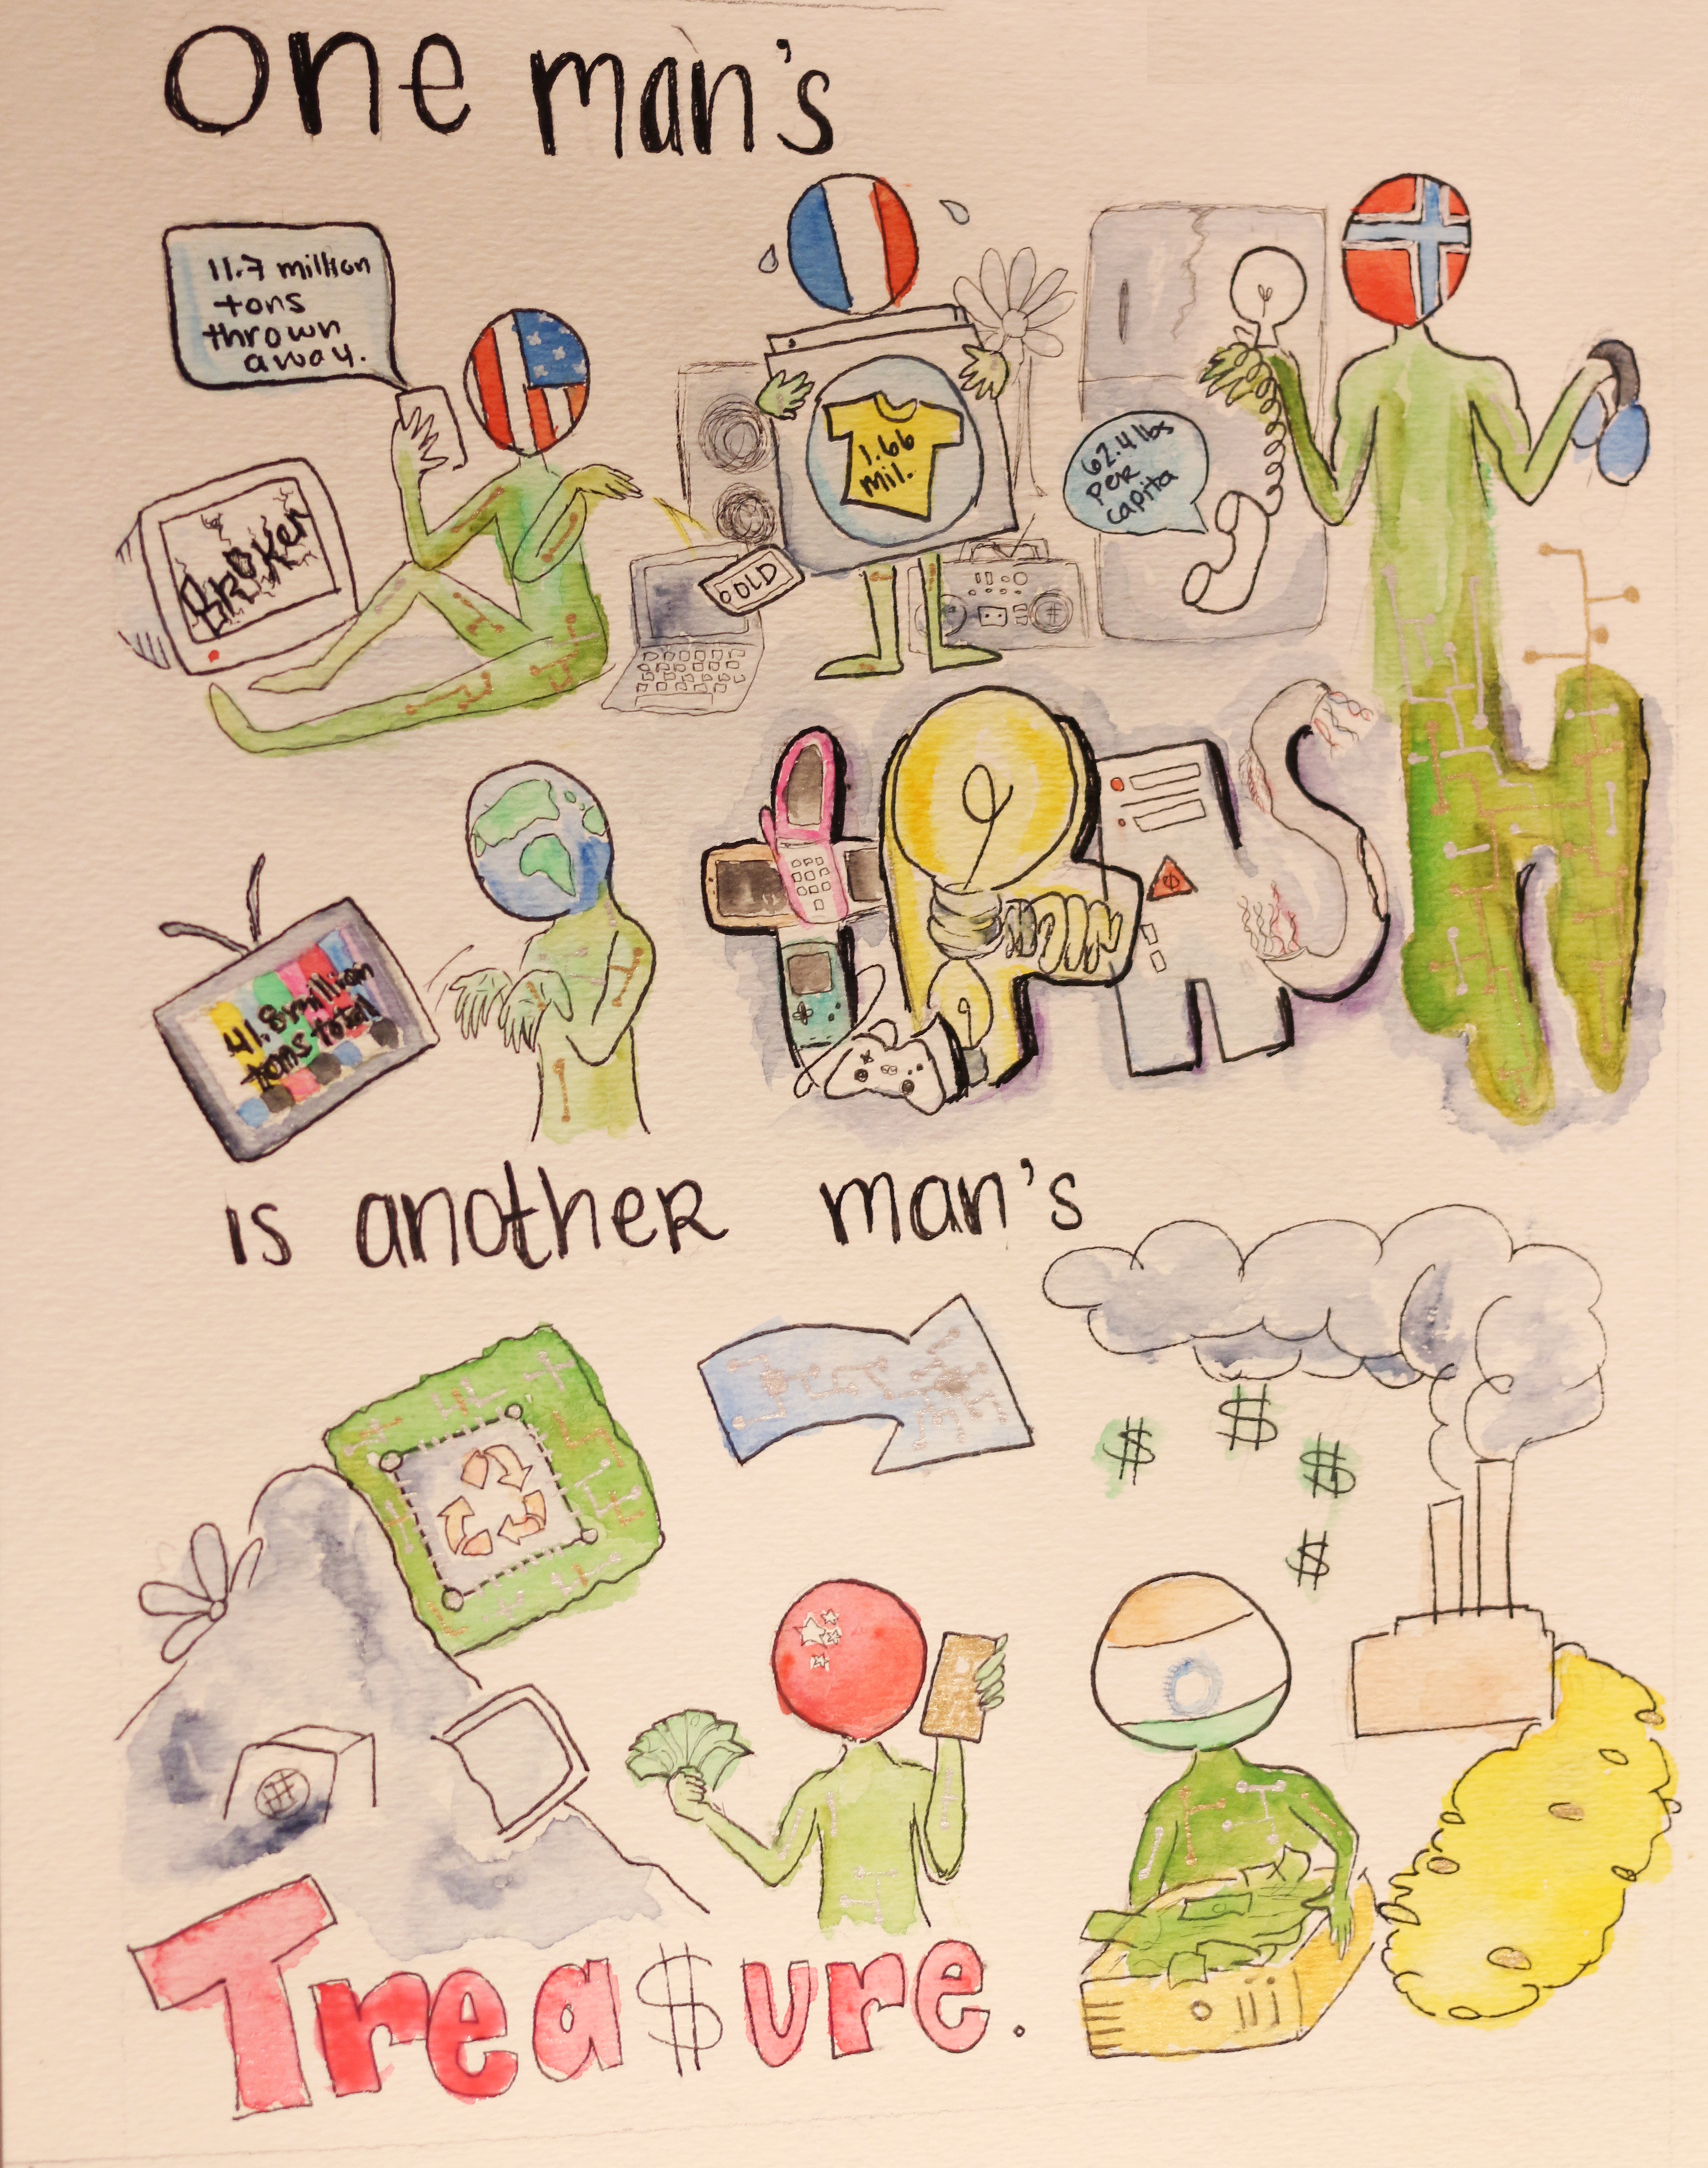 One man's
11.7 million
tons
thrown
away.
BROKEN
1.66
mil.
OLD
62.4 lbs
per
capita
tRASH
41.8 million
tons total
is another man's
$
$
$
$
#
Trea$ure.